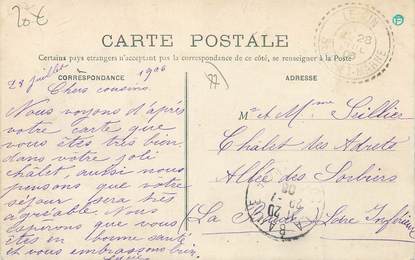 20€
CARTE POSTALE
Certains pays étrangers n'acceptant pas la correspondance de ce côté, se renseigner à la Poste
CORRESPONDANCE
ADRESSE
28 juillet 1906
Chers cousins.
Nous voyons d'après
votre carte que
vous êtes très bien
dans votre joli
châlet, aussi nous
pensons que votre
séjour sera très
agréable. Nous
esperons que vous
êtes en bonne santé
et vous embrassons bien
M. et Mme
Châlet des Adrets
Allée des Sorbiers
La Loire Inférieure
28
LA BAULE